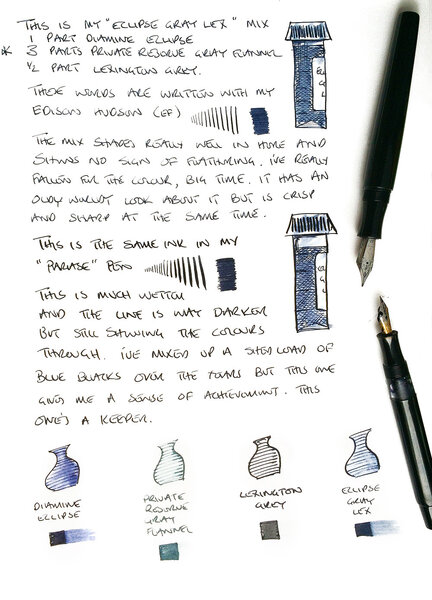 THIS IS MY "ECLIPSE GRAY LEX" MIX
1 PART DIAMINE ECLIPSE
* 3 PARTS PRIVATE RESERVE GRAY FLANNEL
½ PART LEXINGTON GREY.
THESE WORDS ARE WRITTEN WITH MY
EDISON HUDSON (EF)
THE MIX SHADES REALLY WELL IN MORE AND
SHOWS NO SIGN OF FEATHERING. I'VE REALLY
FALLEN FOR THE COLOUR, BIG TIME. IT HAS AN
OLDY WORLDY LOOK ABOUT IT BUT IS CRISP
AND SHARP AT THE SAME TIME.
THIS IS THE SAME INK IN MY
PEN
THIS IS MUCH WETTER
AND THE LINE IS WAY DARKER
BUT STILL SHOWING THE COLOURS
THROUGH. I'VE MIXED UP A SHED LOAD OF
BLUE BLACKS OVER THE YEARS BUT THIS ONE
GIVES ME A SENSE OF ACHIEVEMENT. THIS
ONE'S A KEEPER.
DIAMINE
ECLIPSE
PRIVATE
RESERVE
GRAY
FLANNEL
LEXINGTON
GREY
ECLIPSE
GRAY
LEX